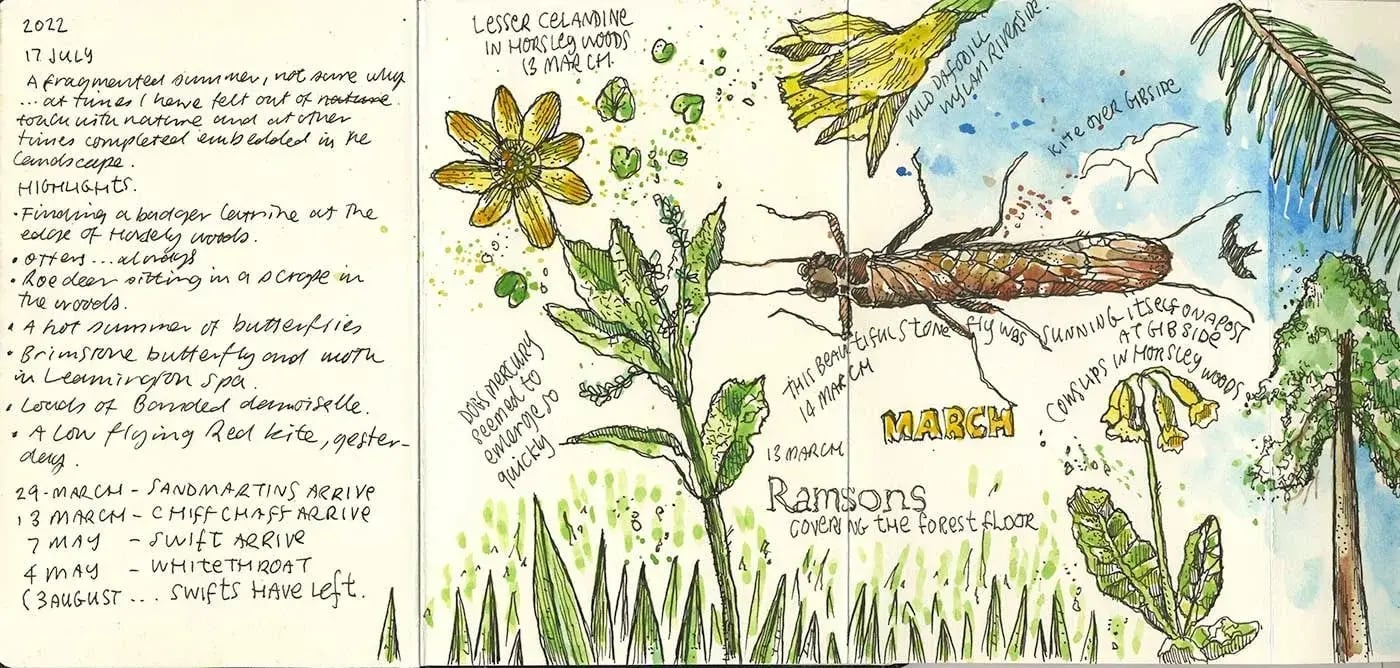 2022
17 JULY
A fragmented summer, not sure why
... at times I have felt out of nature
touch with nature and at other
times completed embedded in the
landscape.
HIGHLIGHTS.
• Finding a badger latrine at the
edge of Horsely woods.
• otters... always
• Roe deer sitting in a scrape in
the woods.
• A hot summer of butterflies
• Brimstone butterfly and moth
in Leamington spa.
• Loads of Banded demoiselle.
• A low flying Red kite, yester-
day.
29 MARCH - SANDMARTINS ARRIVE
13 MARCH - CHIFFCHAFF ARRIVE
7 MAY - SWIFT ARRIVE
4 MAY - WHITETHROAT
(3 AUGUST ... SWIFTS HAVE Left.
LESSER CELANDINE
IN HORSLEY WOODS
13 MARCH
WILD DAFFODILL
WYLAM RIVERSIDE.
KITE OVER GIBSIDE
DOGS MERCURY
seemed to
emerge so
quickly
THIS BEAUTIFUL STONE fly WAS SUNNING ITSELF ON A POST
AT GIBSIDE
14 MARCH
COWSLIPS IN HORSLEY WOODS
MARCH
13 MARCH
Ramsons
COVERING THE FOREST FLOOR